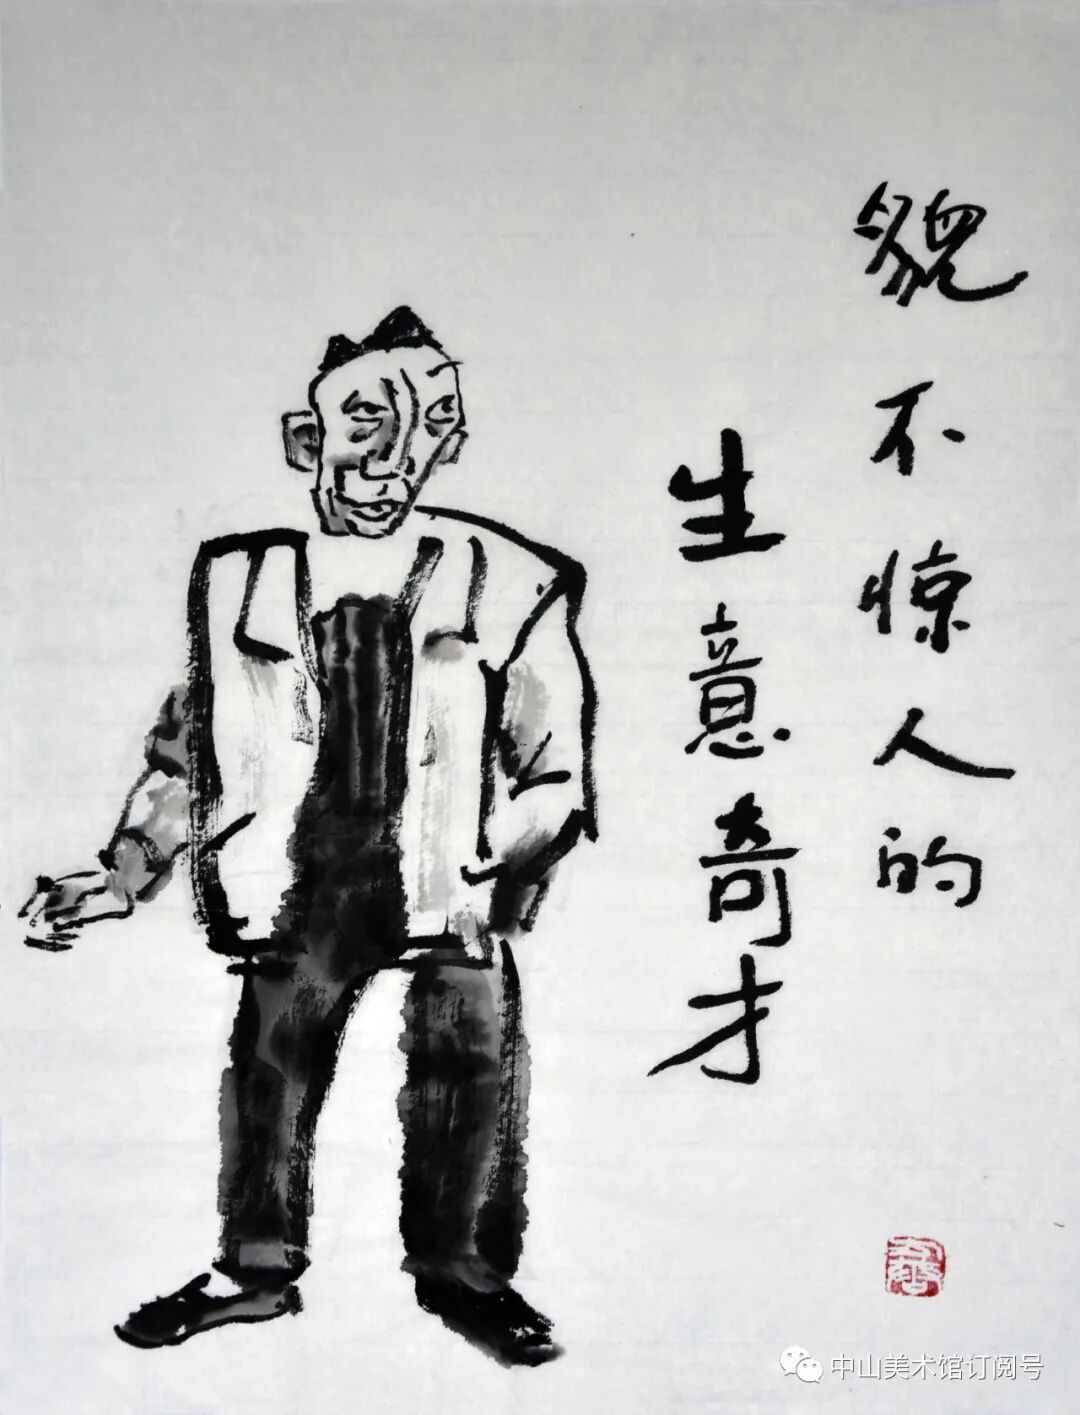 貌不惊人的
生意奇才
中山美术馆订阅号